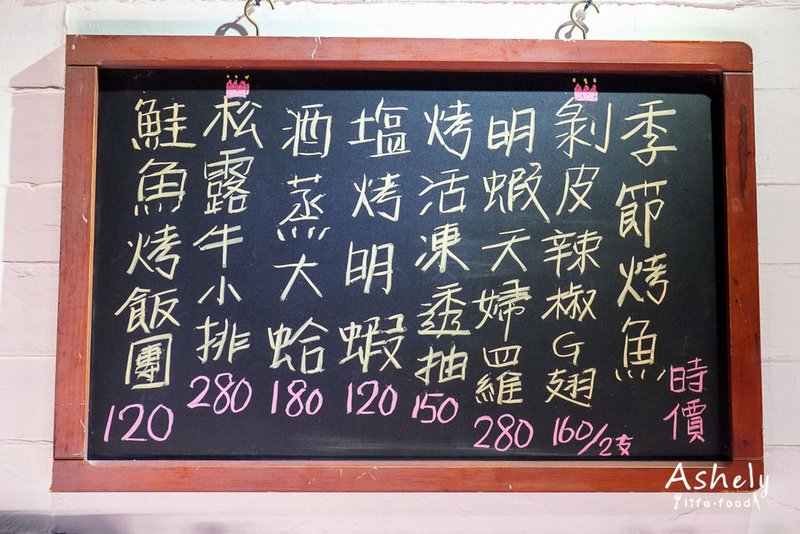 季節烤魚
時價
剝皮辣椒G翅
160/2支
明蝦天婦羅
280
烤活凍透抽
150
塩烤明蝦
120
酒蒸大蛤
180
松露牛小排
280
鮭魚烤飯團
120
Ashely
life·food